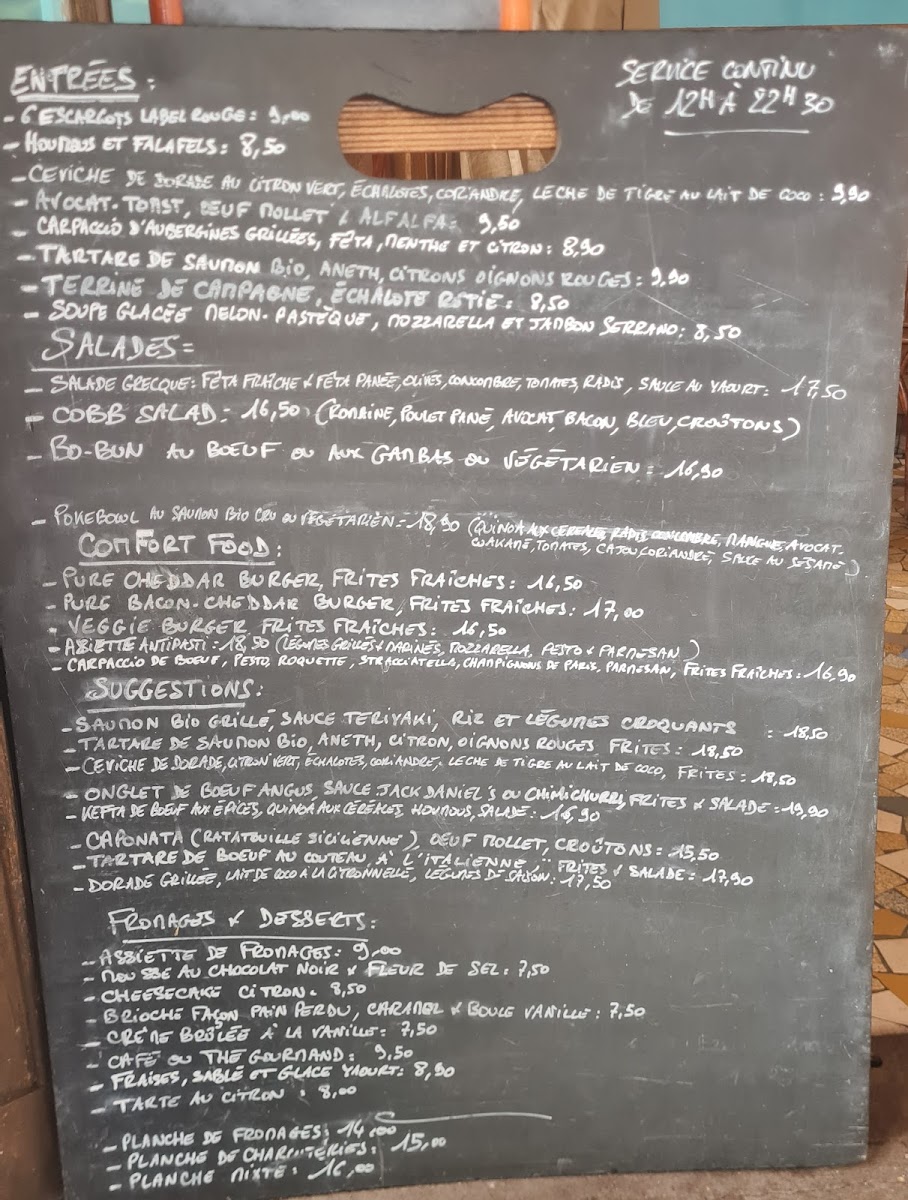 ENTRÉES :
SERVICE CONTINU
DE 12H À 22H30
- 6 ESCARGOTS LABEL ROUGE : 9,00
- HOUMOUS ET FALAFELS : 8,50
- CEVICHE DE DORADE AU CITRON VERT, ÉCHALOTES, CORIANDRE, LECHE DE TIGRE AU LAIT DE COCO : 9,90
- AVOCAT-TOAST, OEUF MOLLET & ALFALFA : 9,50
- CARPACCIO D'AUBERGINES GRILLÉES, FÊTA, MENTHE ET CITRON : 8,90
- TARTARE DE SAUMON BIO, ANETH, CITRONS OIGNONS ROUGES : 9,90
- TERRINE DE CAMPAGNE, ÉCHALOTE ROTIE : 8,50
- SOUPE GLACÉE MELON-PASTÈQUE, MOZZARELLA ET JAMBON SERRANO : 8,50
SALADES =
- SALADE GRECQUE : FÊTA FRAÎCHE & FÊTA PANÉE, OLIVES, CONCOMBRE, TOMATES, RADIS, SAUCE AU YAOURT : 17,50
- COBB SALAD : 16,50 (ROMAINE, POULET PANÉ, AVOCAT, BACON, BLEU, CROÛTONS)
- BO-BUN AU BOEUF OU AUX GAMBAS OU VÉGÉTARIEN : 16,90
- POKEBOWL AU SAUMON BIO CRU OU VÉGÉTARIEN = 18,90 (QUINOA AUX CÉRÉALES, RADIS CONCOMBRE, MANGUE, AVOCAT.
WAKAMÉ, TOMATES, CAJOU, CORIANDRE, SAUCE AU SÉSAME)
COMFORT FOOD :
- PURE CHEDDAR BURGER, FRITES FRAÎCHES : 16,50
- PURE BACON-CHEDDAR BURGER, FRITES FRAÎCHES : 17,00
- VEGGIE BURGER FRITES FRAÎCHES : 16,50
- ASSIETTE ANTIPASTI : 18,50 (LÉGUMES GRILLÉS & MARINÉS, MOZZARELLA, PESTO & PARMESAN)
- CARPACCIO DE BOEUF, PESTO ROQUETTE, STRACCIATELLA, CHAMPIGNONS DE PARIS, PARMESAN, FRITES FRAÎCHES : 16,90
SUGGESTIONS :
- SAUMON BIO GRILLÉ, SAUCE TERIYAKI, RIZ ET LÉGUMES CROQUANTS : 18,50
- TARTARE DE SAUMON BIO, ANETH, CITRON, OIGNONS ROUGES FRITES : 18,50
- CEVICHE DE DORADE, CITRON VERT, ÉCHALOTES, CORIANDRE, LECHE DE TIGRE AU LAIT DE COCO, FRITES : 18,50
- ONGLET DE BOEUF ANGUS, SAUCE JACK DANIEL'S OU CHIMICHURRI, FRITES & SALADE : 19,90
- KEFTA DE BOEUF AUX ÉPICES, QUINOA AUX CÉRÉALES, HOUMOUS, SALADE : 16,90
- CAPONATA (RATATOUILLE SICILIENNE), OEUF MOLLET, CROÛTONS : 15,50
- TARTARE DE BOEUF AU COUTEAU À L'ITALIENNE FRITES & SALADE : 17,90
- DORADE GRILLÉE, LAIT DE COCO A LA CITRONNELLE, LÉGUMES DE SAISON : 17,50
FROMAGES & DESSERTS :
- ASSIETTE DE FROMAGES : 9,00
- MOUSSE AU CHOCOLAT NOIR & FLEUR DE SEL : 7,50
- CHEESECAKE CITRON : 8,50
- BRIOCHE FAÇON PAIN PERDU, CARAMEL & BOULE VANILLE : 7,50
- CRÈME BRÛLÉE À LA VANILLE : 7,50
- CAFÉ OU THÉ GOURMAND : 9,50
- FRAISES, SABLÉ ET GLACE YAOURT : 8,90
- TARTE AU CITRON : 8,00
- PLANCHE DE FROMAGES : 14,00
- PLANCHE DE CHARCUTERIES : 15,00
- PLANCHE MIXTE : 16,00